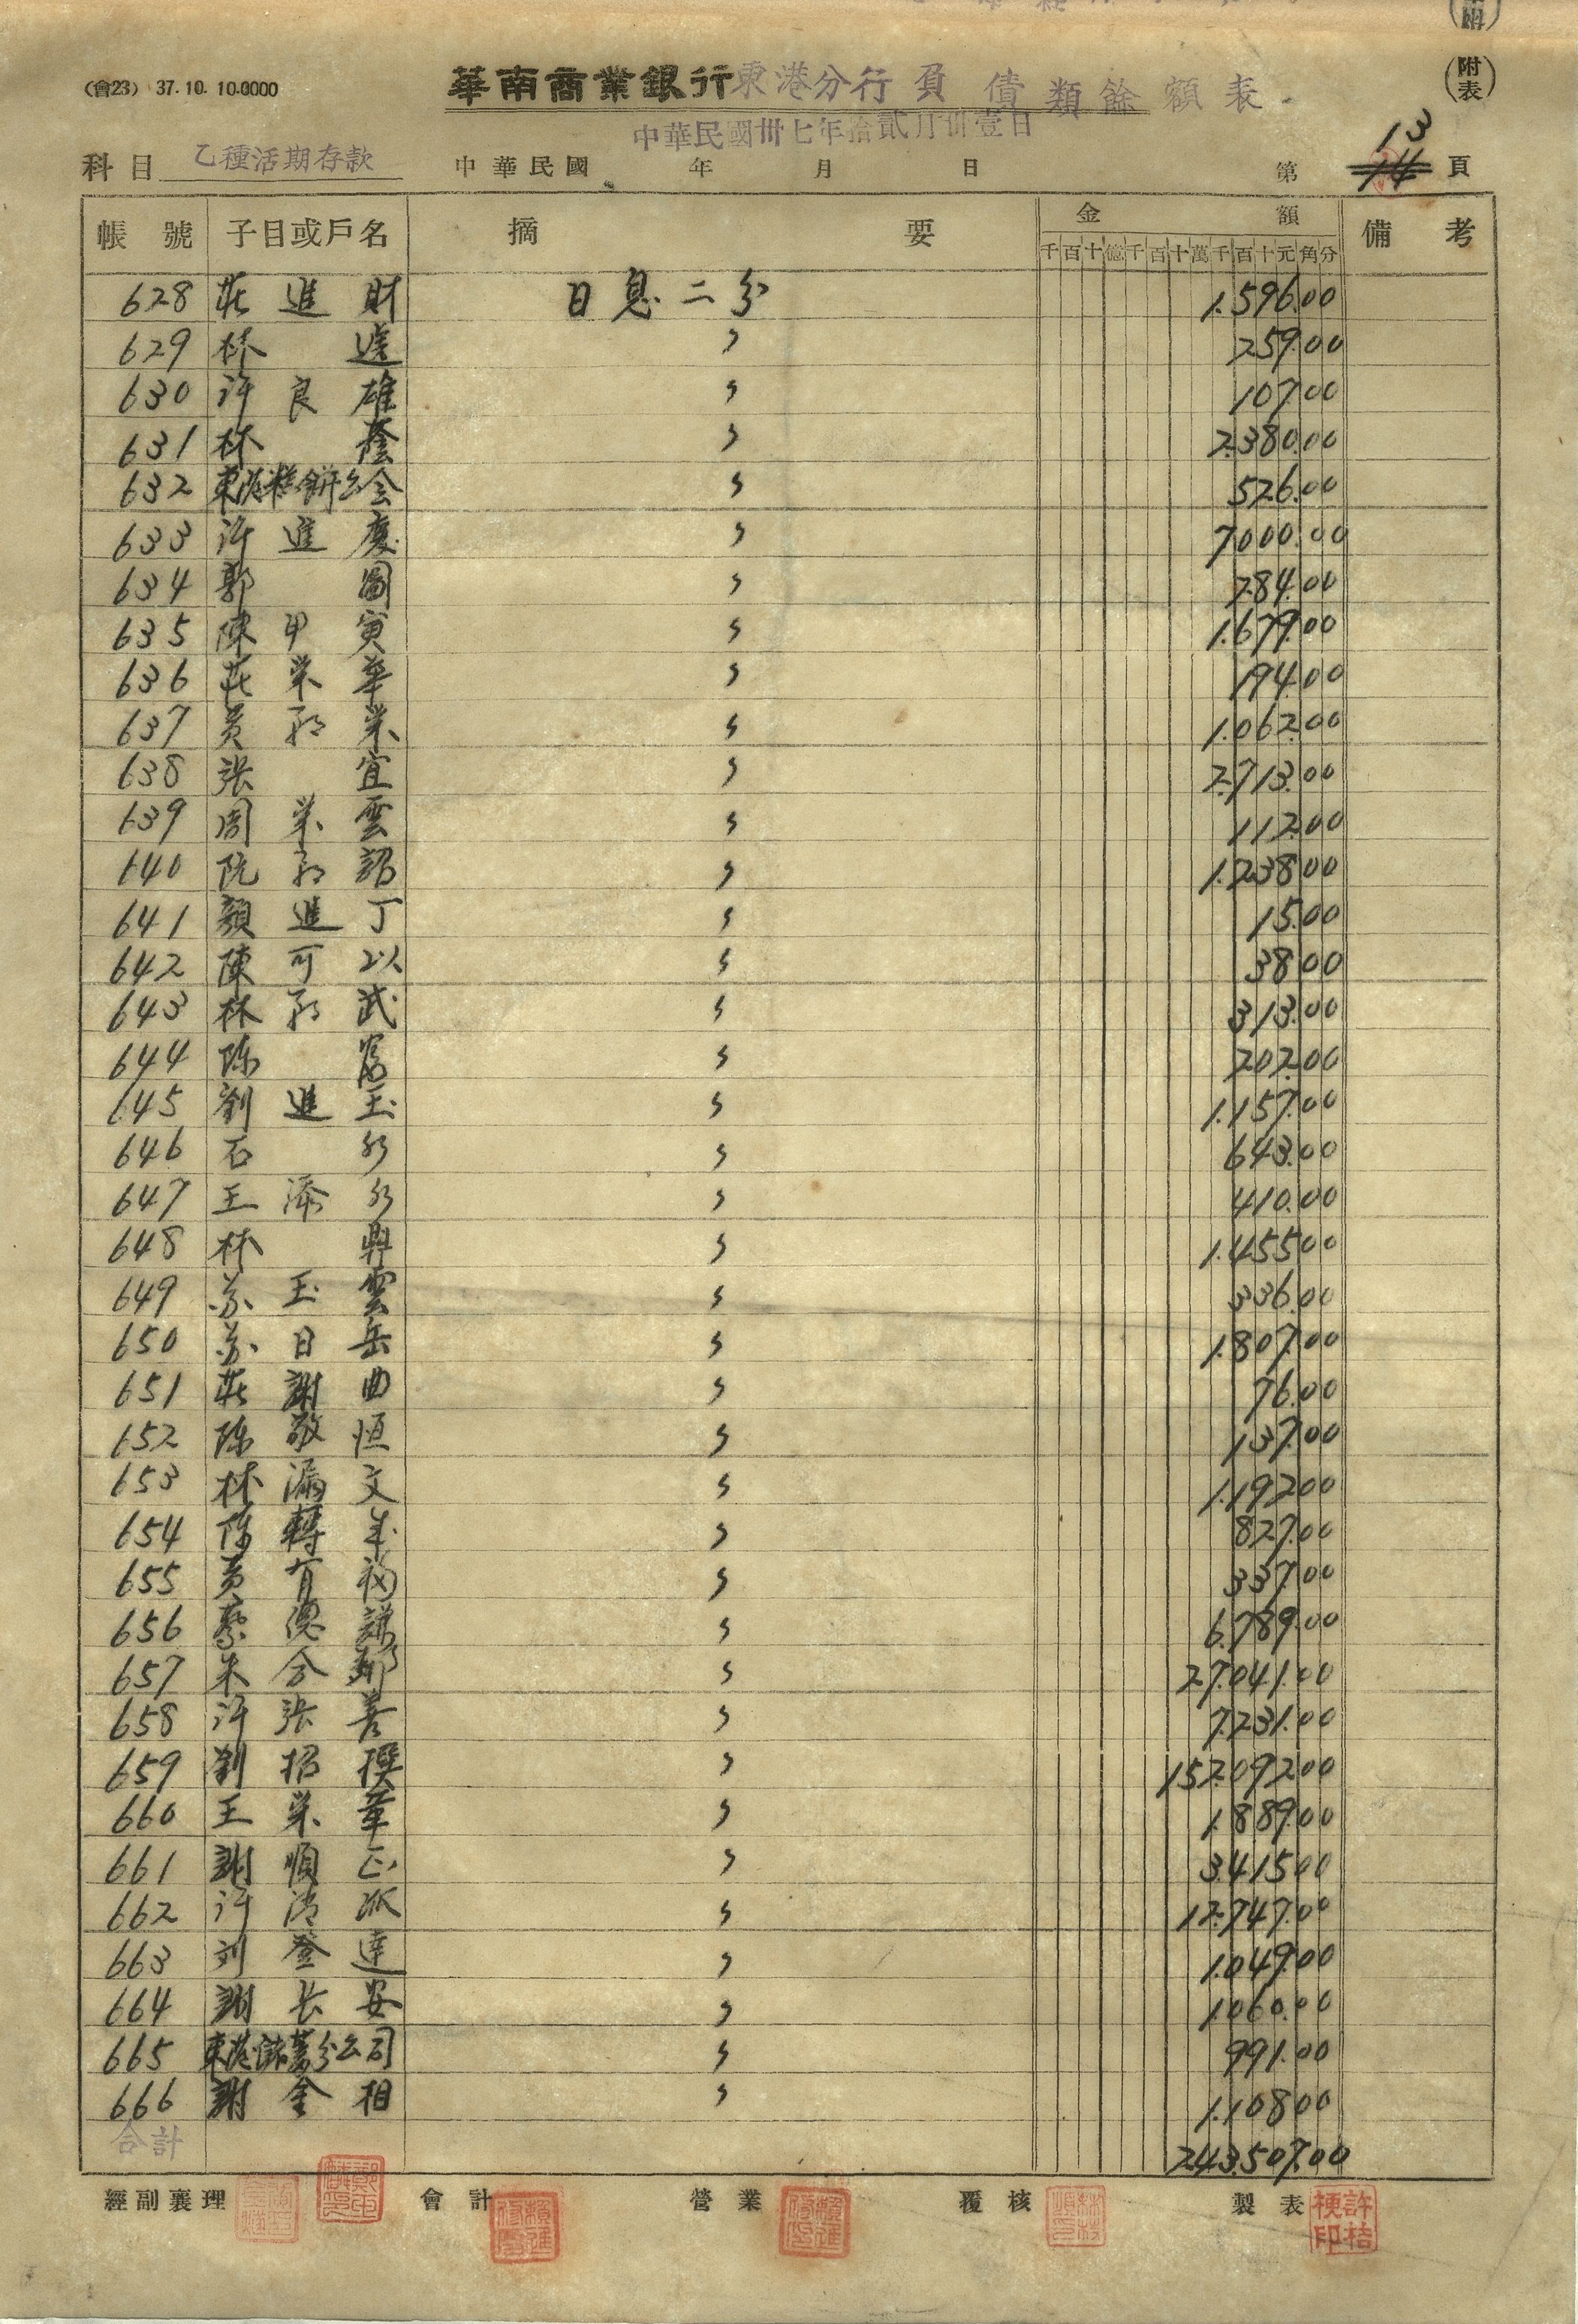 (會23) 37.10.10.0000
華南商業銀行東港分行負債類餘額表
(附表)
中華民國卅七年拾貳月卅壹日
科目 乙種活期存款 中華民國 年 月 日 第 13 14 頁
帳號 子目或戶名 摘要 金額 備考
千百十億千百十萬千百十元角分
628 莊進財 日息二分 1.596.00
629 林 〃 259.00
630 許良雄 〃 107.00
631 林蔭 〃 2.380.00
632 東港糕餅公会 〃 526.00
633 許進慶 〃 7.000.00
634 郭圖 〃 784.00
635 陳甲寅 〃 1.679.00
636 莊栄華 〃 194.00
637 黃栄 〃 1.062.00
638 張宜 〃 2.713.00
639 周栄雲 〃 112.00
640 阮 〃 1.238.00
641 顏進丁 〃 15.00
642 陳可以 〃 38.00
643 林武 〃 313.00
644 陈 〃 202.00
645 劉進玉 〃 1.157.00
646 石水 〃 643.00
647 王添水 〃 410.00
648 林興 〃 1.455.00
649 苏玉雲 〃 336.00
650 苏日岳 〃 1.807.00
651 莊謝曲 〃 76.00
652 陈敬恒 〃 137.00
653 林漏文 〃 1.192.00
654 陈轉年 〃 827.00
655 黃有福 〃 337.00
656 蔡德謀 〃 6.789.00
657 朱 〃 27.041.00
658 許張善 〃 7.231.00
659 劉招撰 〃 152.092.00
660 王栄華 〃 1.889.00
661 謝順正 〃 3.415.00
662 許清派 〃 12.747.00
663 刘登達 〃 1.049.00
664 謝长安 〃 1.060.00
665 東港分公司 〃 991.00
666 謝金相 〃 1.108.00
合計 243.507.00
經副襄理 會計 營業 覆核 製表